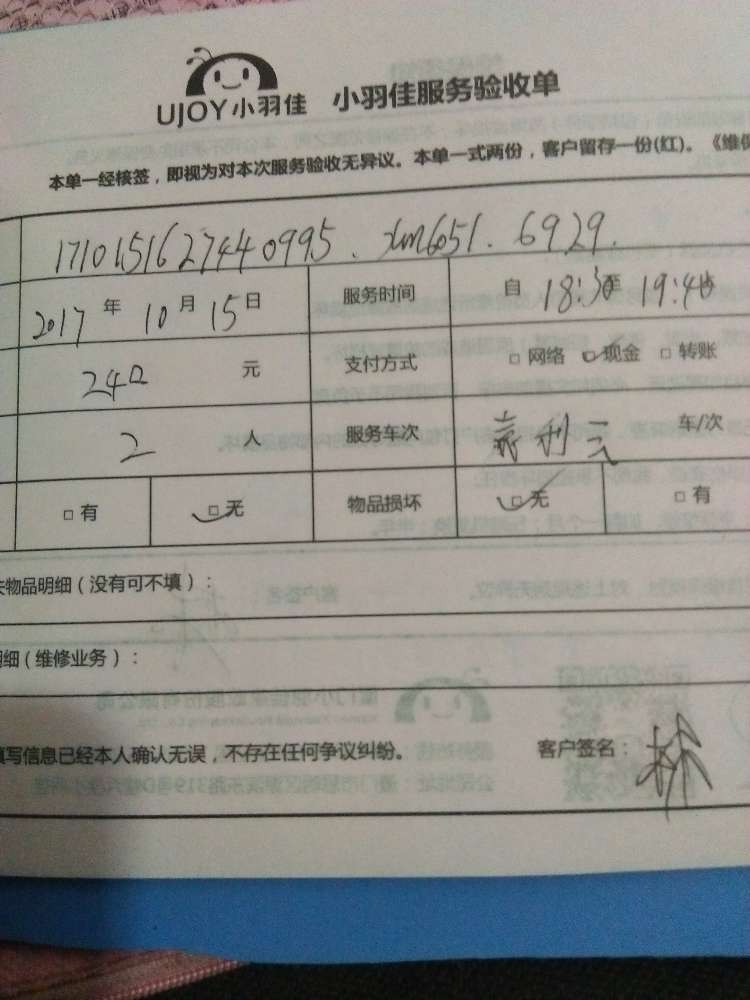 UJOY小羽佳 小羽佳服务验收单
本单一经核签，即视为对本次服务验收无异议。本单一式两份，客户留存一份(红)。《维保
17101516274440995. xm6051. 6929.
2017年10月15日 服务时间 自18:30至19:40
240元 支付方式 □网络 □现金 □转账
2人 服务车次 车/次
□有 □无 物品损坏 □无 □有
物品明细（没有可不填）：
明细（维修业务）：
填写信息已经本人确认无误，不存在任何争议纠纷。 客户签名：林